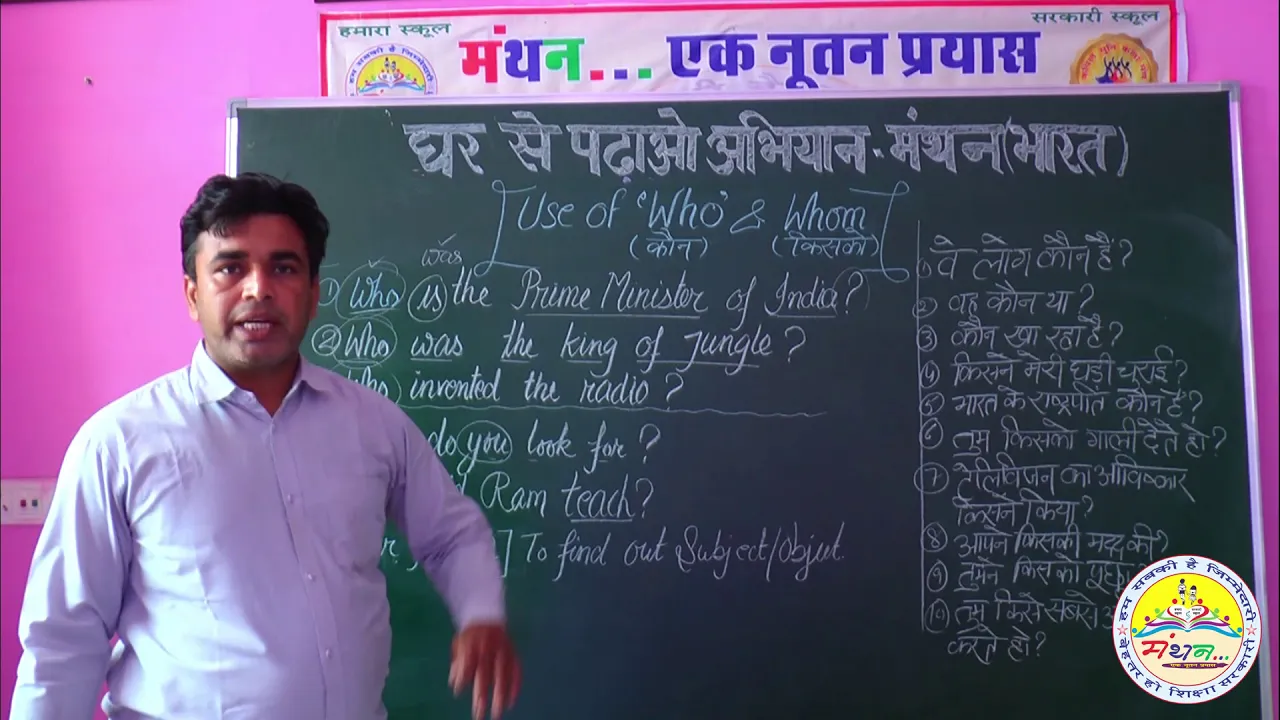 हमारा स्कूल
सरकारी स्कूल
मंथन... एक नूतन प्रयास
घर से पढ़ाओ अभियान - मंथन (भारत)
Use of 'Who' & Whom
(कौन) (किसको)
was
1) Who is the Prime Minister of India?
2) Who was the king of Jungle?
Who invented the radio?
do you look for?
Ram teach?
] To find out Subject/Object
1) वे लोग कौन हैं?
2) वह कौन था?
3) कौन खा रहा है?
4) किसने मेरी घड़ी चुराई?
5) भारत के राष्ट्रपति कौन हैं?
6) तुम किसको गाली देते हो?
7) टेलीविजन का आविष्कार
किसने किया?
8) आपने किसकी मदद की?
9) तुमने किसको
10) तुम किसे सबसे
करते हो?
हम सबकी है जिम्मेदारी
मंथन...
एक नूतन प्रयास
बेहतर हो शिक्षा सरकारी